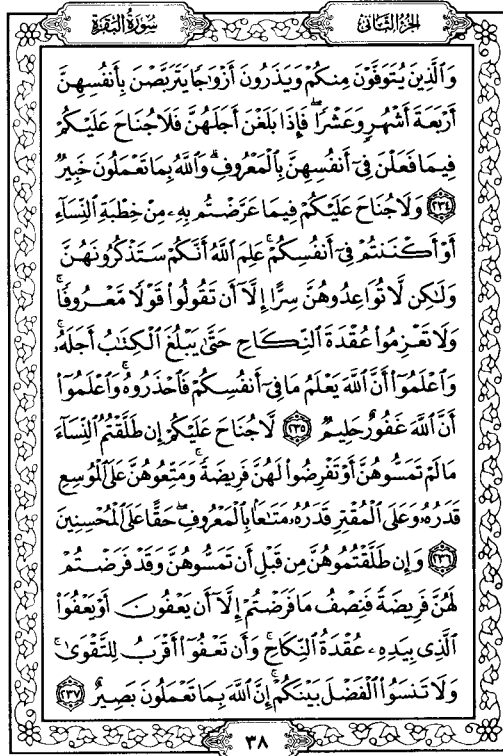 الجزء الثاني
سورة البقرة
وَالَّذِينَ يُتَوَفَّوْنَ مِنكُمْ وَيَذَرُونَ أَزْوَاجًا يَتَرَبَّصْنَ بِأَنفُسِهِنَّ
أَرْبَعَةَ أَشْهُرٍ وَعَشْرًا ۖ فَإِذَا بَلَغْنَ أَجَلَهُنَّ فَلَا جُنَاحَ عَلَيْكُمْ
فِيمَا فَعَلْنَ فِي أَنفُسِهِنَّ بِالْمَعْرُوفِ ۗ وَاللَّهُ بِمَا تَعْمَلُونَ خَبِيرٌ
﴿٢٣٤﴾ وَلَا جُنَاحَ عَلَيْكُمْ فِيمَا عَرَّضْتُم بِهِۦ مِنْ خِطْبَةِ النِّسَآءِ
أَوْ أَكْنَنتُمْ فِي أَنفُسِكُمْ ۚ عَلِمَ اللَّهُ أَنَّكُمْ سَتَذْكُرُونَهُنَّ
وَلَٰكِن لَّا تُوَاعِدُوهُنَّ سِرًّا إِلَّآ أَن تَقُولُوا۟ قَوْلًا مَّعْرُوفًا ۚ
وَلَا تَعْزِمُوا۟ عُقْدَةَ النِّكَاحِ حَتَّىٰ يَبْلُغَ الْكِتَٰبُ أَجَلَهُۥ ۚ
وَاعْلَمُوٓا۟ أَنَّ اللَّهَ يَعْلَمُ مَا فِىٓ أَنفُسِكُمْ فَاحْذَرُوهُ ۚ وَاعْلَمُوٓا۟
أَنَّ اللَّهَ غَفُورٌ حَلِيمٌ ﴿٢٣٥﴾ لَّا جُنَاحَ عَلَيْكُمْ إِن طَلَّقْتُمُ النِّسَآءَ
مَا لَمْ تَمَسُّوهُنَّ أَوْ تَفْرِضُوا۟ لَهُنَّ فَرِيضَةً ۚ وَمَتِّعُوهُنَّ عَلَى الْمُوسِعِ
قَدَرُهُۥ وَعَلَى الْمُقْتِرِ قَدَرُهُۥ مَتَٰعًۢا بِالْمَعْرُوفِ ۖ حَقًّا عَلَى الْمُحْسِنِينَ
﴿٢٣٦﴾ وَإِن طَلَّقْتُمُوهُنَّ مِن قَبْلِ أَن تَمَسُّوهُنَّ وَقَدْ فَرَضْتُمْ
لَهُنَّ فَرِيضَةً فَنِصْفُ مَا فَرَضْتُمْ إِلَّآ أَن يَعْفُونَ أَوْ يَعْفُوَا۟
الَّذِي بِيَدِهِۦ عُقْدَةُ النِّكَاحِ ۚ وَأَن تَعْفُوٓا۟ أَقْرَبُ لِلتَّقْوَىٰ ۚ
وَلَا تَنسَوُا۟ الْفَضْلَ بَيْنَكُمْ ۚ إِنَّ اللَّهَ بِمَا تَعْمَلُونَ بَصِيرٌ ﴿٢٣٧﴾
٣٨